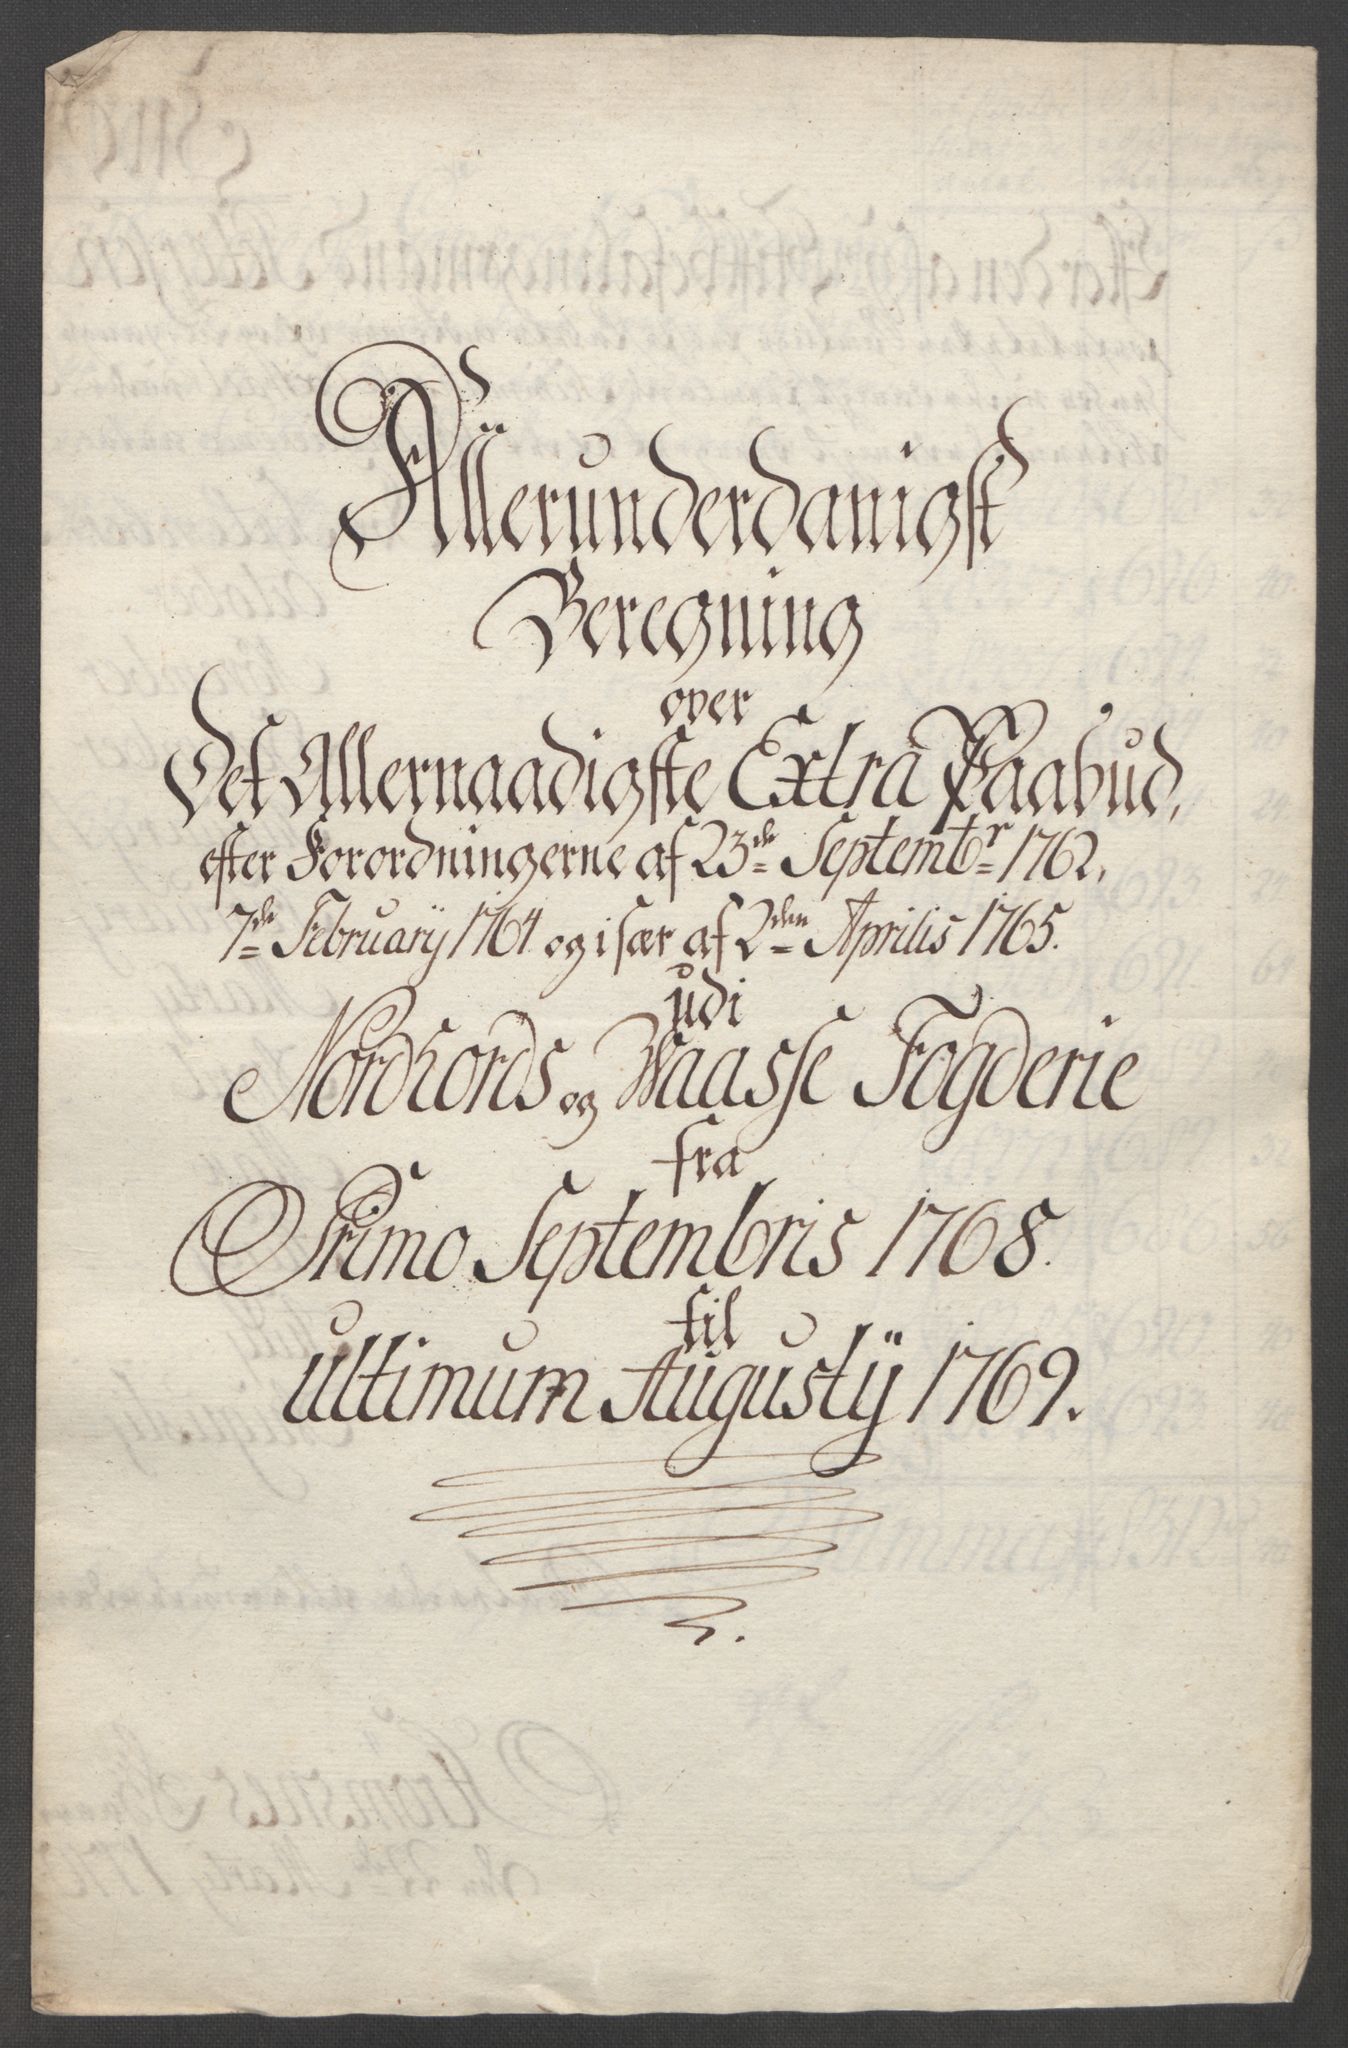 Allerunderdanigst
Beregning
over
Det Allernaadigste Extra Paabud,
efter Forordningerne af 23de Septembr 1762,
7de Februarij 1764 og i sær af 2den Aprilis 1765.
udi
Nordhords og Waasse Fogderie
fra
Primo Septembris 1768.
til
Ultimum Augustij 1769.